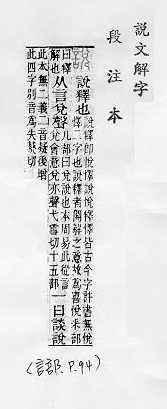 説文解字
段注本
說釋也
說釋卽悅懌說悅釋懌皆古今字許書無悅
懌二字也說釋者開解之意故爲喜悅采部
曰釋
解也
从言兌聲
儿部曰兌說也本周易此從言
兌會意兌亦聲弋雪切十五部
一曰談說
此本無二義二音疑後增
此四字別音爲失爇切
(言部.P.94)